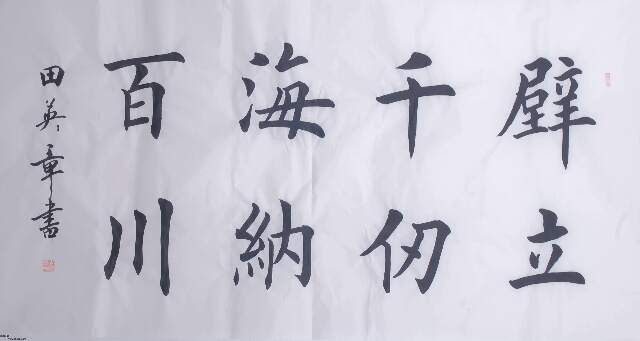 壁立
千仞
海納
百川
田英章書